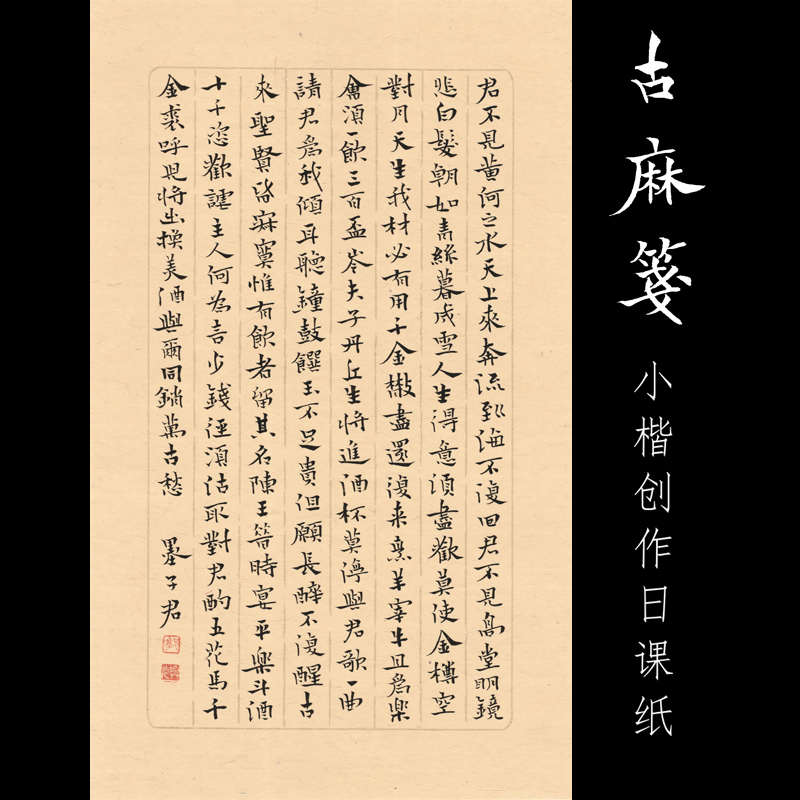 古麻箋
小楷创作日课纸
君不見黄河之水天上來奔流到海不復回君不見髙堂明鏡
悲白髮朝如青絲暮成雪人生得意須盡歡莫使金樽空
對月天生我材必有用千金散盡還復来烹羊宰牛且爲樂
會須一飲三百盃岑夫子丹丘生將進酒杯莫渟與君歌一曲
請君爲我傾耳聽鐘鼓饌玉不足貴但願長醉不復醒古
來聖賢皆寂寞惟有飲者留其名陳王昔時宴平樂斗酒
十千恣歡謔主人何為言少錢逕須沽取對君酌五花馬千
金裘呼児將出換美酒與爾同銷萬古愁 墨子君